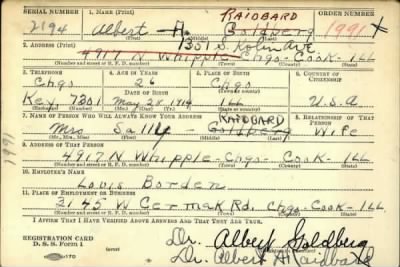 SERIAL NUMBER
1. NAME (Print)
RAIDBARD
2194
Albert A. Goldberg
1991 X
(First) (Middle) (Last)
2. ADDRESS (Print)
1351 S.
4917 N Whipple - Chgo - Cook - ILL
(Number and street or R. F. D. number) (Town) (County) (State)
3. TELEPHONE
4. AGE IN YEARS
5. PLACE OF BIRTH
6. COUNTRY OF CITIZENSHIP
Chgo
26
Chgo
DATE OF BIRTH
Key 7301
May 24 1914
ILL
U.S.A
7. NAME OF PERSON WHO WILL ALWAYS KNOW YOUR ADDRESS
RAIDBARD
8. RELATIONSHIP OF THAT PERSON
Mrs Sally Goldberg
Wife
(Mr., Mrs., Miss) (First) (Middle) (Last)
9. ADDRESS OF THAT PERSON
4917 N Whipple - Chgo - Cook - ILL
(Number and street or R. F. D. number) (Town) (County) (State)
10. EMPLOYER'S NAME
Louis Borden
11. PLACE OF EMPLOYMENT OR BUSINESS
3145 W Cermak Rd. Chgo - Cook - ILL
(Number and street or R. F. D. number) (Town) (County) (State)
I AFFIRM THAT I HAVE VERIFIED ABOVE ANSWERS AND THAT THEY ARE TRUE.
REGISTRATION CARD
D. S. S. FORM 1
Dr. Albert Goldberg
Dr. Albert A Raidbard
1991